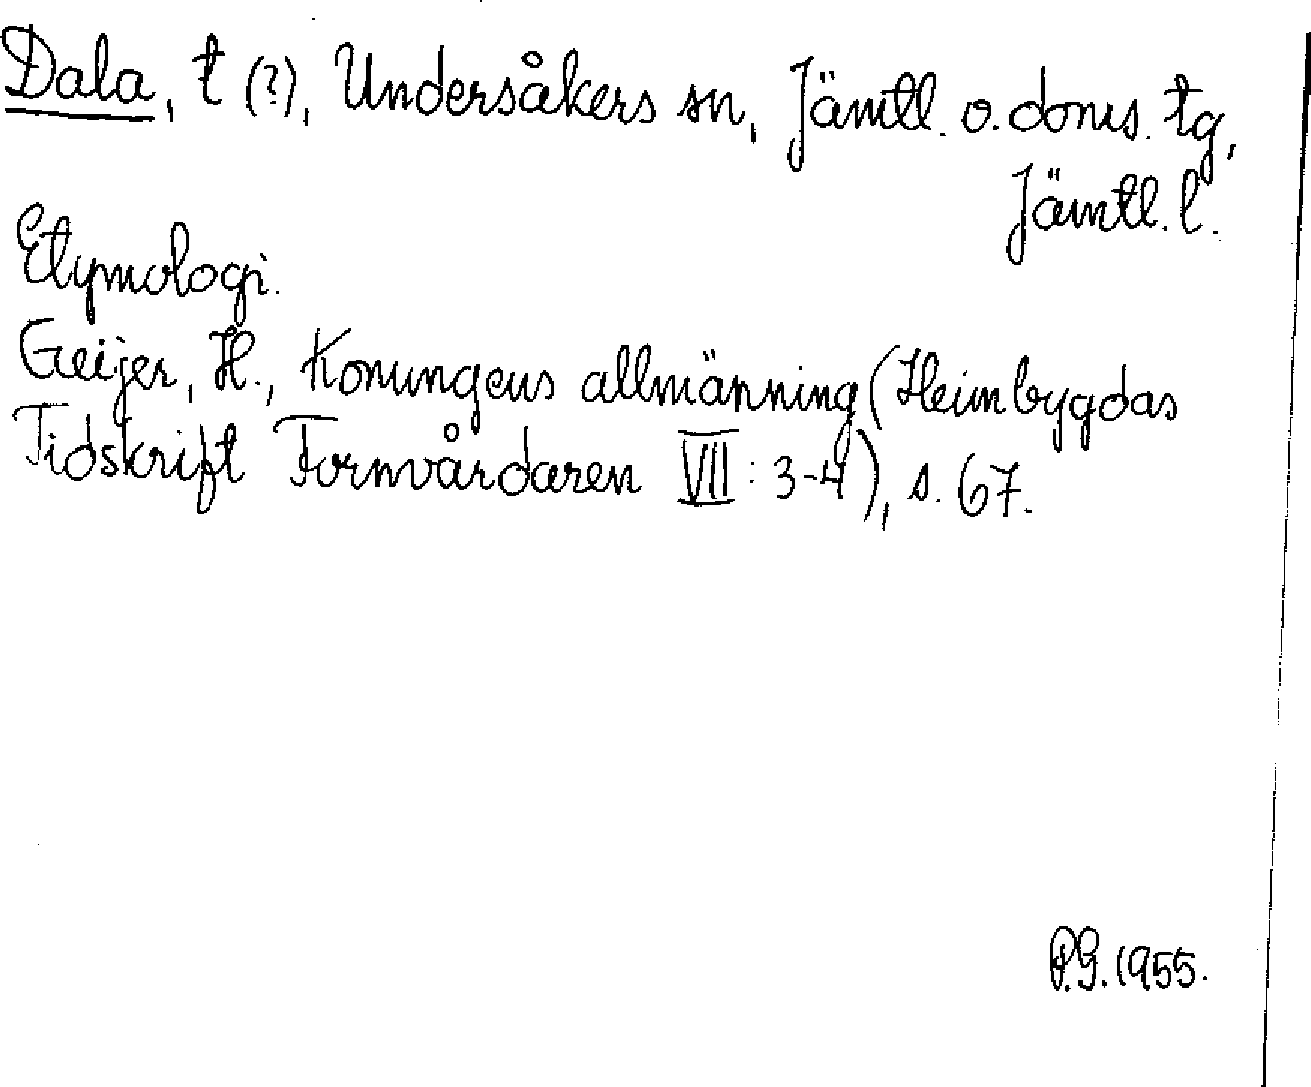 Dala, t (?), Undersåkers sn, Jämtl. o. doms. tg,
Jämtl. l.
Etymologi.
Geijer, H., Konungens allmänning (Heimbygdas
Tidskrift Fornvårdaren VII: 3-4), s. 67.
P.G. 1955.